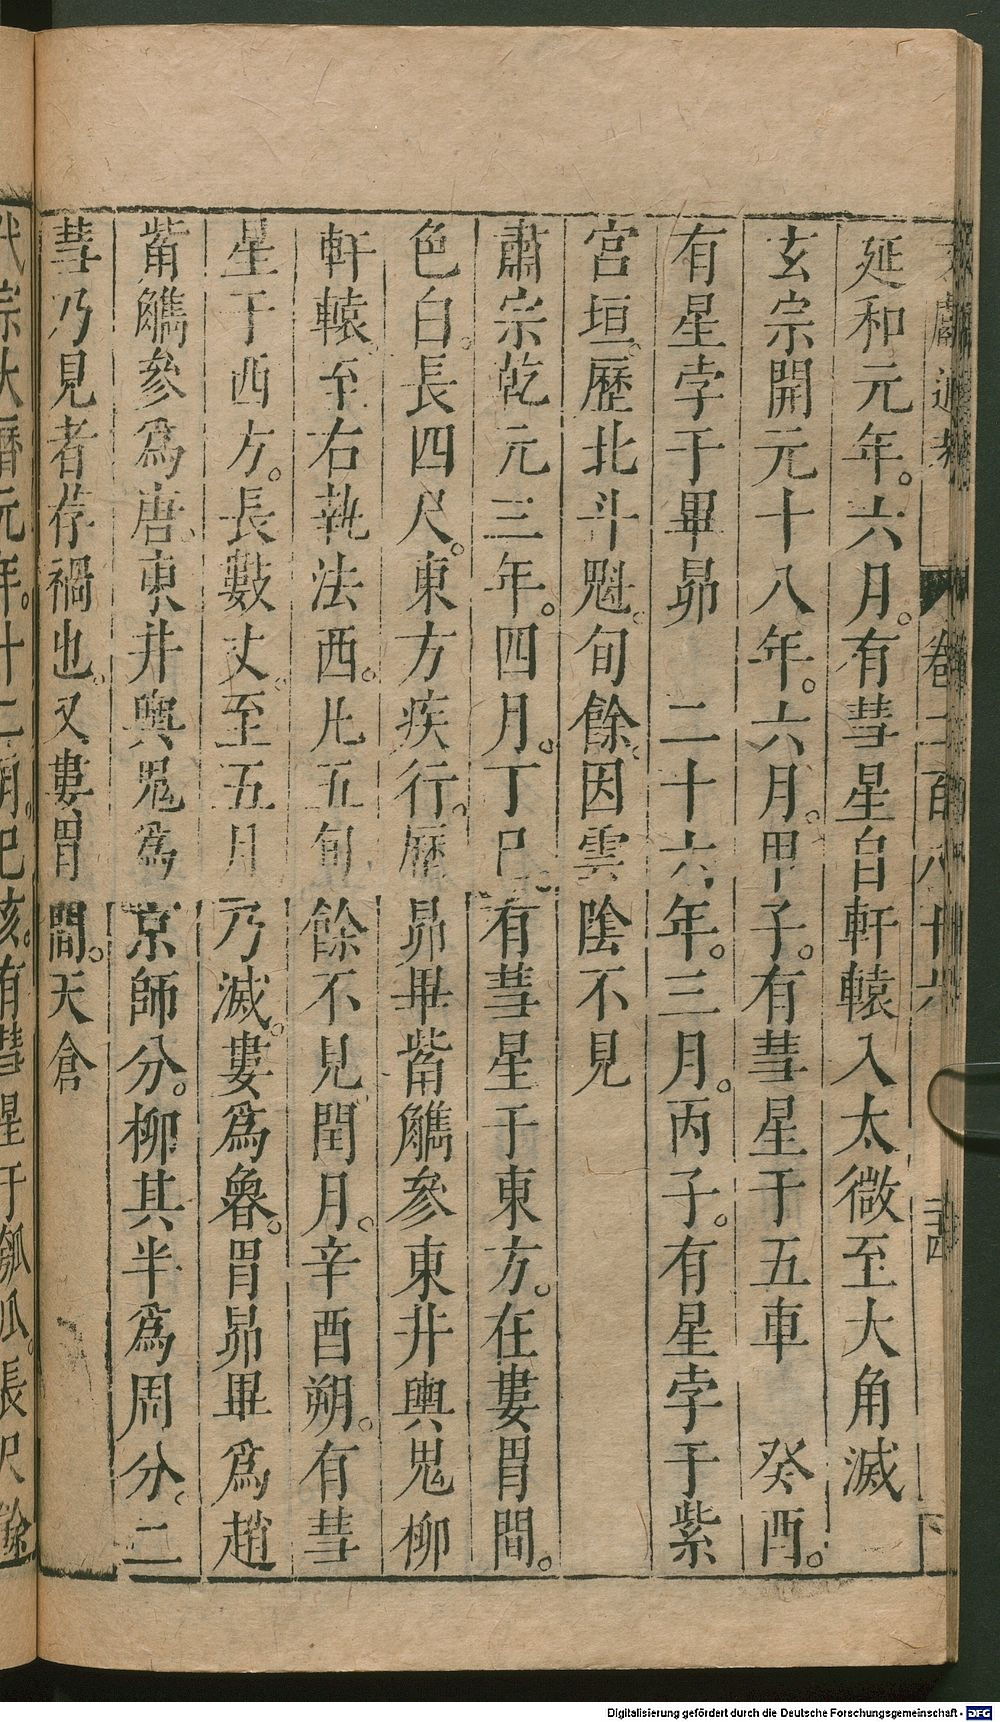 文獻通考 卷二百八十六 三十四
延和元年。六月。有彗星自軒轅入太微至大角滅
玄宗開元十八年。六月。甲子。有彗星于五車 癸酉。
有星孛于畢昴 二十六年。三月。丙子。有星孛于紫
宮垣。歷北斗魁。旬餘。因雲陰不見
肅宗乾元三年。四月。丁巳。有彗星于東方。在婁胃間。
色白。長四尺。東方疾行。歷昴畢觜觿參東井輿鬼柳
軒轅。至右執法西。凡五旬餘不見。閏月。辛酉朔。有彗
星于西方。長數丈。至五月乃滅。婁為魯。胃昴畢為趙
觜觿參為唐。東井輿鬼為京師分。柳其半為周分。二
彗乃見者荐禍也。又婁胃間。天倉
代宗大曆元年。十二月。己亥。有彗星于瓠瓜。長尺餘
Digitalisierung gefördert durch die Deutsche Forschungsgemeinschaft - DFG